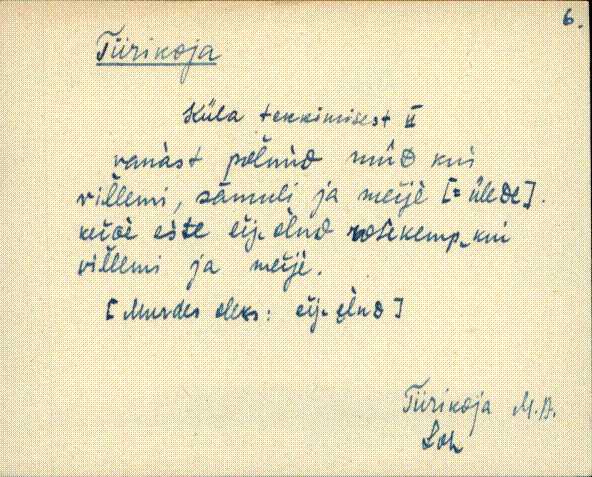 6.
Tiirikoja
Küla tekkimisest II
vanast põlnud mùD kui
villemi, sàmuli ja meijè [= üleDe].
ešte eij- elnuD kui
villemi ja meijè.
[Murdes oleks: eij- elnuD]
Tiirikoja M.A.
Loh